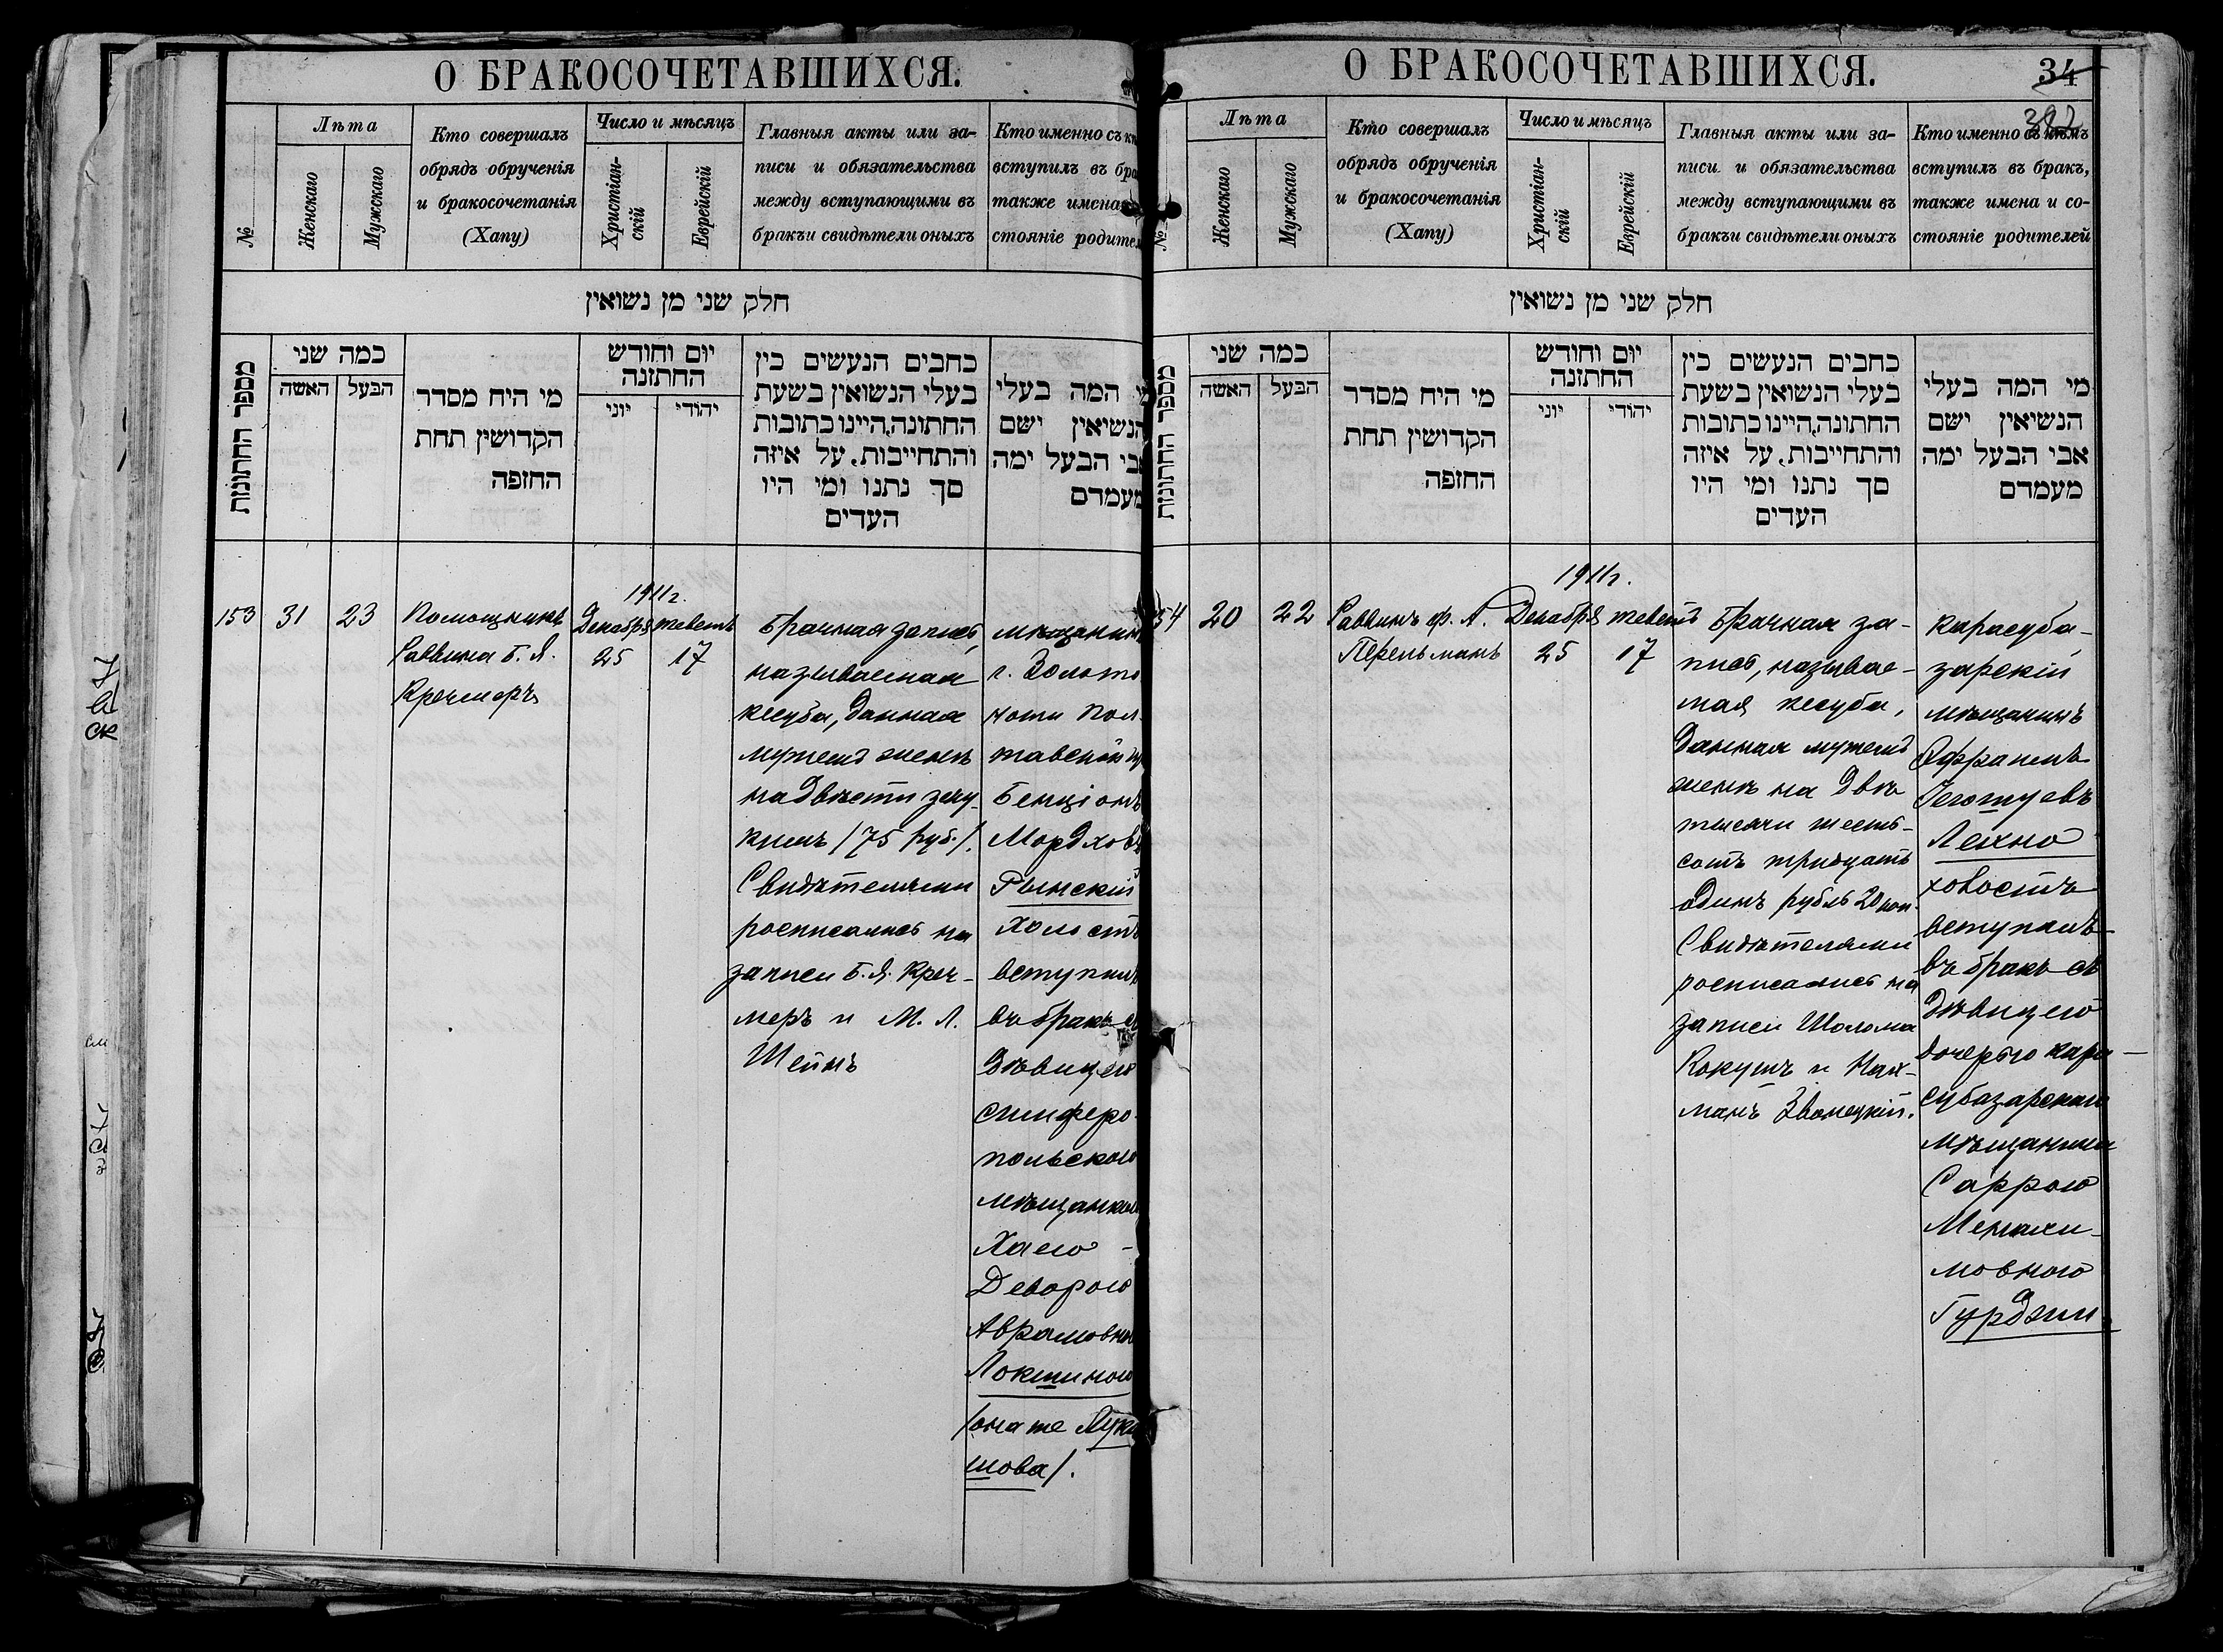 О БРАКОСОЧЕТАВШИХСЯ.
№
Лѣта
Женскаго
Мужскаго
Кто совершалъ
обрядъ обрученія
и бракосочетанія
(Хапу)
Число и мѣсяцъ
Христіан-
скій
Еврейскій
Главныя акты или за-
писи и обязательства
между вступающими въ
бракъи свидѣтели оныхъ
Кто именно съ
вступилъ въ
также имена
стояніе
חלק שני מן נשואין
מספר החתונות
כמה שני
האשה
הבעל
מי היח מסדר
הקדושין תחת
החופה
יום וחודש
החתונה
יוני
יהודי
כתבים הנעשים בין
בעלי הנשואין בשעת
החתונה,היינו כתובות
והתחייבות, על איזה
סך נתנו ומי היו
העדים
המה בעלי
הנשיאין ישם
אבי הבעל ימה
מעמדם
153
31
23
Помощникъ
Раввина Б. Я.
Кречмеръ
1911г.
Декабря
25
теветъ
17
Брачная запись,
называемая
ксуба, данная
мужемъ женѣ
на двѣсти зеку-
кимъ /75 руб./.
Свидѣтелями
росписались на
записи Б. Я. Креч-
меръ и М. Л.
Штейнъ
мѣщанинъ
г. Золото
ноши Пол-
тавской
Бенціонъ
Мордховъ
Рымскій
холостъ
вступилъ
въ бракъ
дѣвицею
симферо-
польскою
мѣщанкою
Хаею -
Деворою
Аврамовною
Локшиною
/она же Лук
шова/.
О БРАКОСОЧЕТАВШИХСЯ.
34
382
№
Лѣта
Женскаго
Мужскаго
Кто совершалъ
обрядъ обрученія
и бракосочетанія
(Хапу)
Число и мѣсяцъ
Христіан-
скій
Еврейскій
Главныя акты или за-
писи и обязательства
между вступающими въ
бракъи свидѣтели оныхъ
Кто именно съ кѣмъ
вступилъ въ бракъ,
также имена и со-
стояніе родителей
חלק שני מן נשואין
מספר החתונות
כמה שני
האשה
הבעל
מי היח מסדר
הקדושין תחת
החופה
יום וחודש
החתונה
יוני
יהודי
כתבים הנעשים בין
בעלי הנשואין בשעת
החתונה,היינו כתובות
והתחייבות, על איזה
סך נתנו ומי היו
העדים
מי המה בעלי
הנשיאין ישם
אבי הבעל ימה
מעמדם
54
20
22
Раввинъ Ф. А.
Перельманъ
1911г.
Декабря
25
теветъ
17
Брачная за-
пись, называе-
мая ксуба,
данная мужемъ
женѣ на двѣ
тысячи шесть-
сотъ тридцать
одинъ рубль 20 коп.
Свидѣтелями
росписались на
записи Шолома
Кокушъ и Нах-
манъ Звонецкій.
карасуба-
зарскій
мѣщанинъ
Эфраимъ
Іегошуевъ
Лехно
холостъ
вступилъ
въ бракъ съ
дѣвицею
дочерью кара-
субазарскаго
мѣщанина
Саррою
Менахи-
мовною
Гурджи.